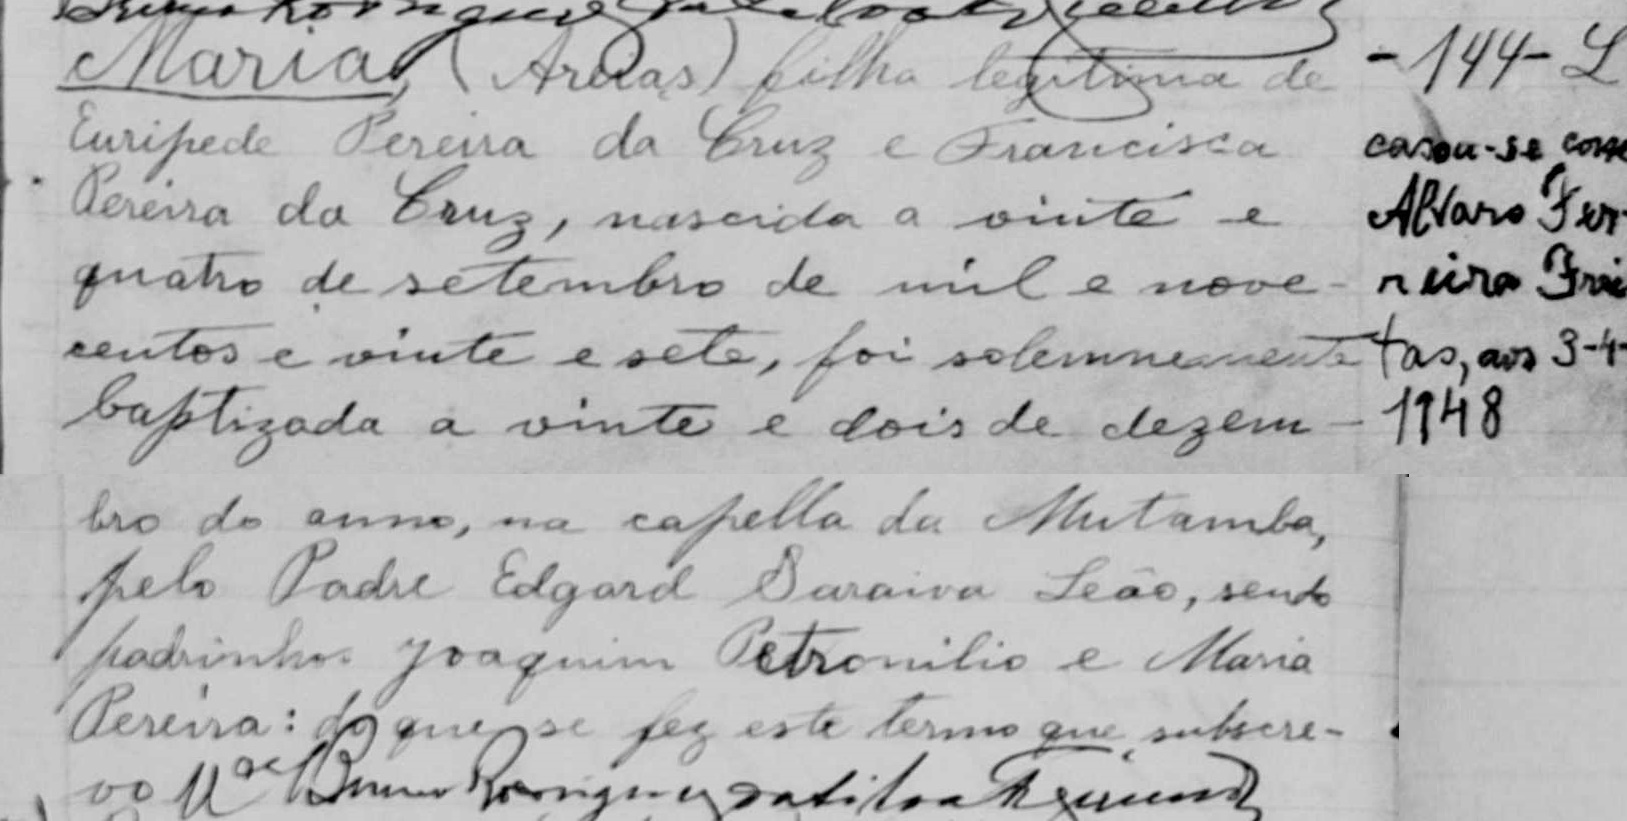 Maria, (Areias) filha legitima de
Euripede Pereira da Cruz e Francisca
Pereira da Cruz, nascida a vinte e
quatro de setembro de mil e nove-
centos e vinte e sete, foi solemnemente
baptizada a vinte e dois de dezem-
bro do anno, na capella da Mutamba,
pelo Padre Edgard Saraiva Leão, sendo
padrinhos Joaquim Petronilio e Maria
Pereira: do que se fez este termo que subscre-
vo Mᵒʳ Bruno Rodrigues
-144- L
casou-se com
Alvaro Fer-
reira Frei
tas, aos 3-4-
1948